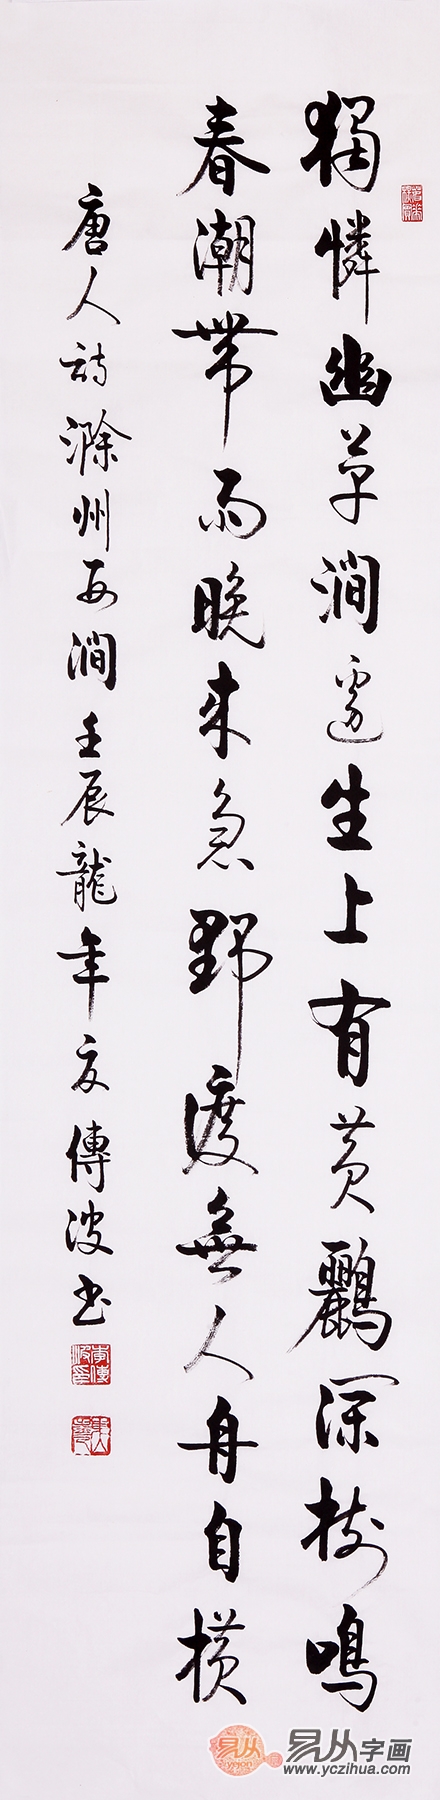 獨憐幽草澗邊生上有黃鸝深樹鳴
春潮帶雨晚来急野渡無人舟自横
唐人詩滁州西澗壬辰龍年夏傳波书
易从
易从字画
www.yczihua.com